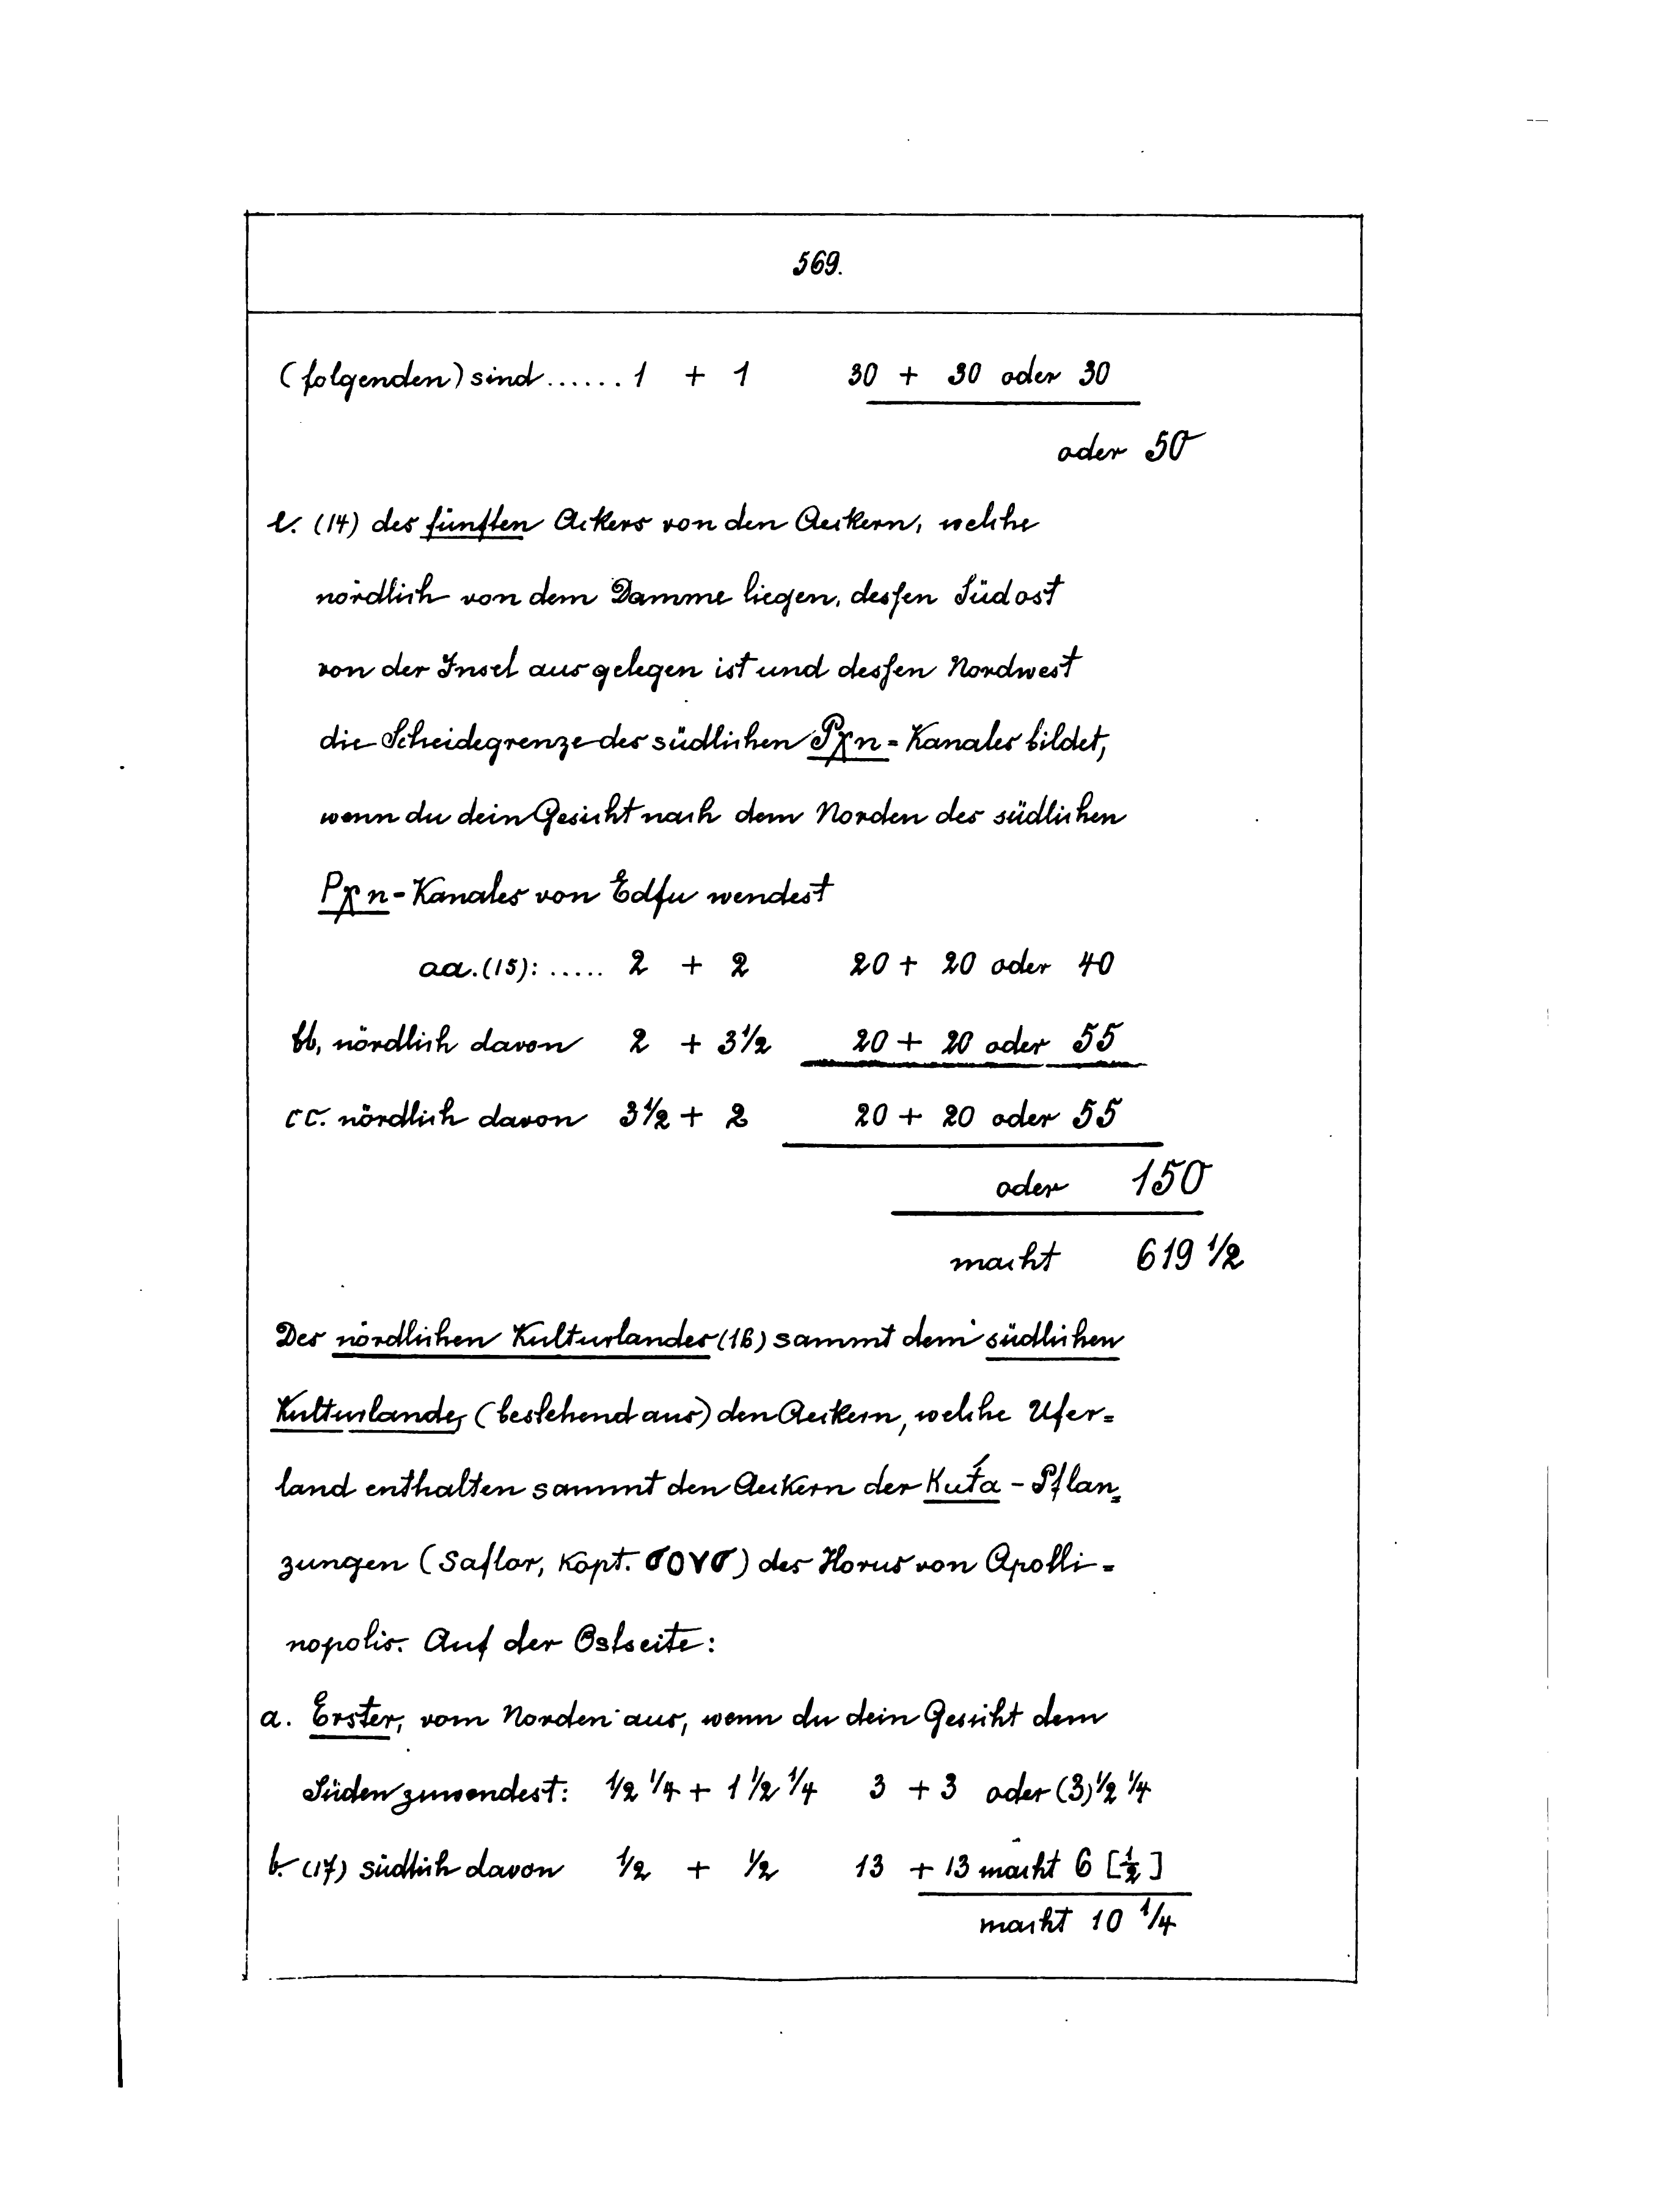 569.
(folgenden) sind ...... 1 + 1 30 + 30 oder 30
oder 50
e. (14) des fünften Ackers von den Aeckern, welche
nördlich von dem Damme liegen, dessen Südost
von der Insel aus gelegen ist und dessen Nordwest
die Scheidegrenze des südlichen Pχn-Kanales bildet,
wenn du dein Gesicht nach dem Norden des südlichen
Pχn-Kanales von Edfu wendest
aa. (15): ..... 2 + 2 20 + 20 oder 40
bb, nördlich davon 2 + 3½ 20 + 20 oder 55
cc. nördlich davon 3½ + 2 20 + 20 oder 55
oder 150
macht 619 ½
Des nördlichen Kulturlandes (16) sammt dem südlichen
Kulturlande, (bestehend aus) den Aeckern, welche Ufer=
land enthalten sammt den Aeckern der Kuťa - Pflan=
zungen (Saflor, Kopt. ϭⲟⲩϭ) des Horus von Apolli=
nopolis. Auf der Ostseite:
a. Erster, vom Norden aus, wenn du dein Gesicht dem
Süden zuwendest: ½ ¼ + 1 ½ ¼ 3 + 3 oder (3) ½ ¼
b. (17) südlich davon ½ + ½ 13 + 13 macht 6 [½]
macht 10 ¼